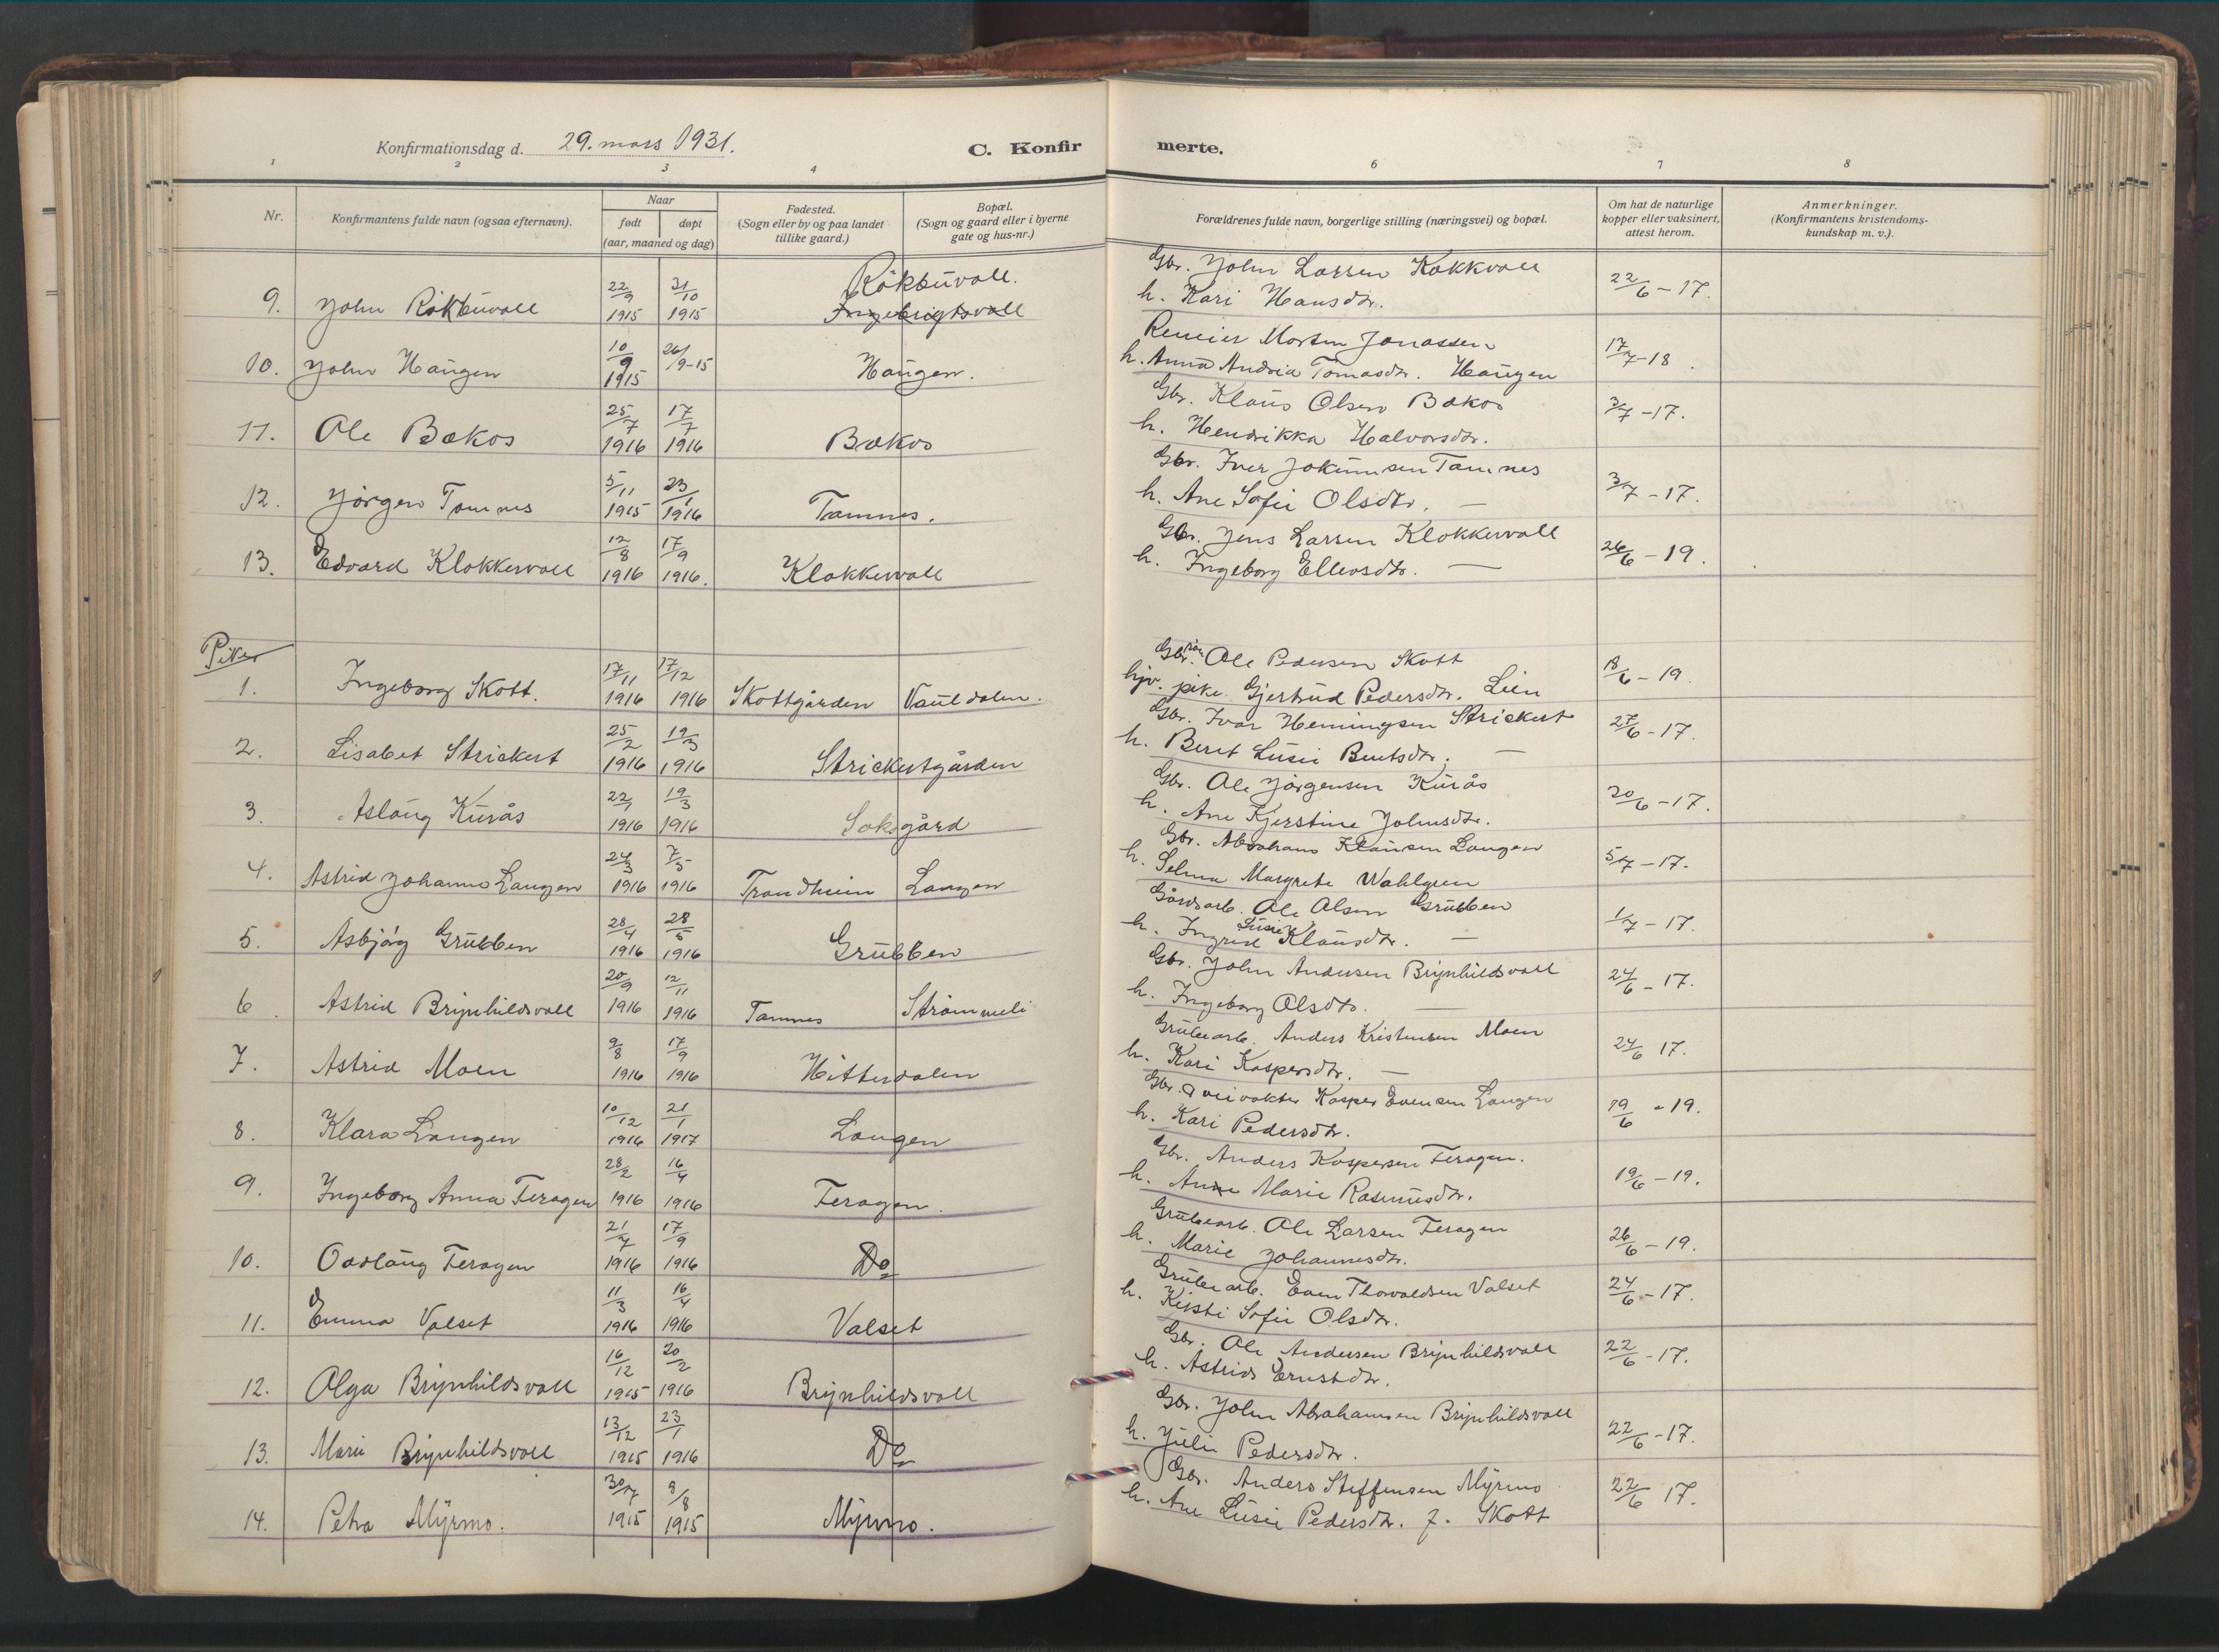 Konfirmationsdag d. 29. mars 1931. C. Konfir merte.
1 2 3 4 6 7 8
Nr. Konfirmantens fulde navn (ogsaa efternavn). Naar født døpt (aar, maaned og dag) Fødested. (Sogn eller by og paa landet tillike gaard.) Bopæl. (Sogn og gaard eller i byerne gate og hus-nr.) Forældrenes fulde navn, borgerlige stilling (næringsvei) og bopæl. Om hat de naturlige kopper eller vaksinert, attest herom. Anmerkninger. (Konfirmantens kristendoms-kundskap m. v.).
9. John Rökbuvoll 22/9 1915 31/10 1915 Rökbuvoll. Ingebrigtsvoll Gbr. John Larsen Kokkvoll 22/6 - 17.
h. Kari Hansdtr.
10. John Haugen 10/9 1915 26/9-15 Haugen. Morten Jonassen 17/7-18.
h. Anna Andrea Tomasdtr. Haugen
11. Ole Bækos 25/7 1916 17/7 1916 Bækos Gbr. Klaus Olsen Bækos 3/7 - 17.
h. Hendrikka Halvorsdtr.
12. Jörgen Tamnes 5/11 1915 23/1 1916 Tamnes. Gbr. Iver Jokumsen Tamnes 3/7 - 17.
h. Ane Sofie Olsdtr. —
13. Edvard Klokkervoll 12/8 1916 17/9 1916. Klokkervoll Gbr. Jens Larsen Klokkervoll 26/6 - 19.
h. Ingeborg Ellevsdtr. —
Piker
1. Ingeborg Skott. 17/11 1916 17/12 1916 Skottgården Vauldalen. Gbr. sön Ole Pedersen Skott 18/6 - 19.
hjv. pike Gjertrud Pedersdtr. Lien
2. Lisabet Strickert 25/2 1916 19/3 1916 Strickertgården Gbr. Ivar Henningsen Strickert 27/6 - 17.
h. Beret Lusie Bentsdtr. —
3. Aslaug Kurås 22/1 1916 19/3 1916 Soksgård Gbr. Ole Jörgensen Kurås 20/6 - 17.
h. Ane Kjerstine Johnsdtr.
4. Astrid Johanna Langen 24/3 1916 7/5 1916 Trondheim Langen Gbr. Abraham Klausen Langen 5/7 - 17.
h. Selma Margrete Wahlgren
5. Asbjög Grubben 28/4 1916 28/5 1916 Grubben Gårdsarb. Ole Olsen Grubben 1/7 - 17.
h. Ingrid Lusie Klausdtr. —
6. Astrid Brynhildsvoll 20/9 1916 12/11 1916 Tamnes Strömmeli Gbr. John Andersen Brynhildsvoll 24/6 - 17.
h. Ingeborg Olsdtr. —
7. Astrid Moen 9/8 1916 17/9 1916 Hitterdalen Grubearb. Anders Kristensen Moen 24/6 17.
h. Kari Kaspersdtr. —
8. Klara Langen 10/12 1916 21/1 1917 Langen Gbr. og veivokter Kasper Evensen Langen 19/6 - 19.
h. Kari Pedersdtr.
9. Ingeborg Anna Feragen 28/2 1916 16/4 1916 Feragen. Gbr. Anders Kaspersen Feragen. 19/6 - 19.
h. Anne Marie Rasmusdtr.
10. Oddlaug Feragen 21/7 1916 17/9 1916 Do Grubearb. Ole Larsen Feragen 26/6 - 19.
h. Marie Johannesdtr.
11. Emma Valset 11/3 1916 16/4 1916 Valset Grubearb. Even Thorvaldsen Valset 24/6 - 17.
h. Kirsti Sofie Olsdtr.
12. Olga Brynhildsvoll 16/12 1915 20/2 1916 Brynhildsvoll Gbr. Ole Andersen Brynhildsvoll 22/6 - 17.
h. Astrid Ernstdtr.
13. Marie Brynhildsvoll 13/12 1915 23/1 1916 Do Gbr. John Abrahamsen Brynhildsvoll 22/6 - 17.
h. Julie Pedersdtr.
14. Petra Myrmo. 30/7 1915 9/8 1915 Myrmo. Gbr. Anders Steffensen Myrmo 22/6 17.
h. Ane Lusie Pedersdtr. f. Skott